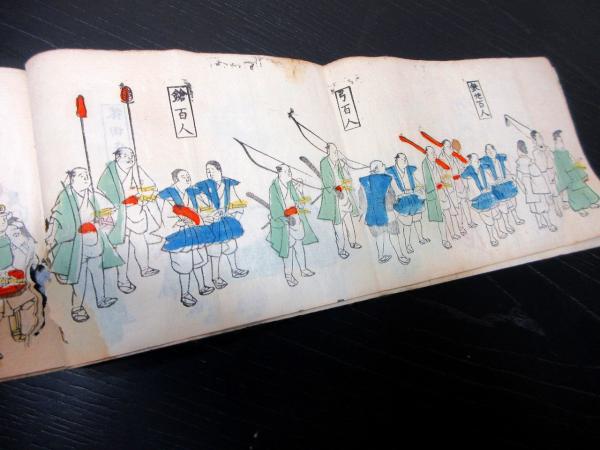 鉄炮百人
弓百人
鎗百人